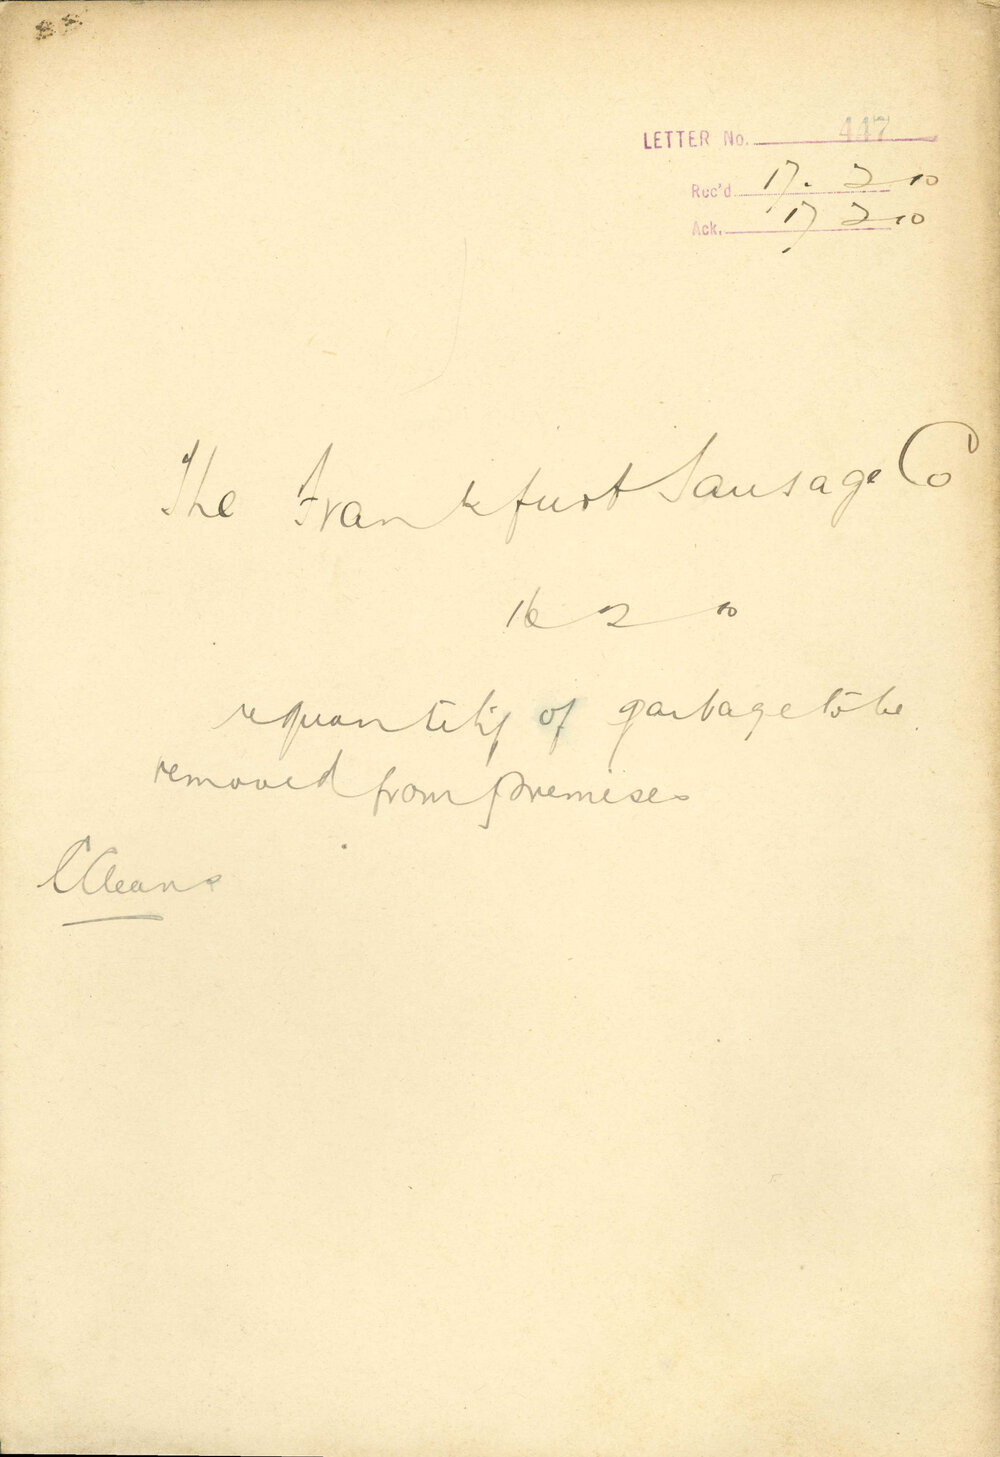 LETTER No. 447
Rec'd 17. 2 10
Ack. 17 2 10
The Frankfurt Sausage Co
16 2 10
re quantity of garbage to be
removed from premises